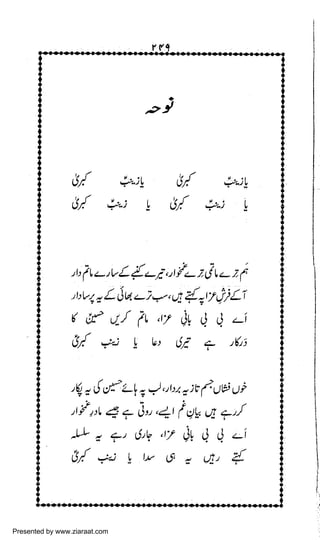 ۲۴۹
نوحہ
یا زینبؑ کبریٰ یا زینبؑ کبریٰ
یا زینبؑ کبریٰ یا زینبؑ کبریٰ
ہم ترے ماتمی ترے غمخوار، تیرے کنبے کے سارے ماتم دار
آکے فرشِ عزا پہ کہتے ہیں، سب ترے بھائی کے یہ پرسا دار
اے بی بی بانیٔ عزا، ماتم کریں حسینؑ کا
ذکر ہے تیری دعا یا زینبؑ کبریٰ
خوں فشاں جسم نازیہ بردار، لب پہ ہائے حسینؑ کی یہ پکار
کرتے ہیں بیان غم ایسے، روتی ہے جیسے مادرِ غمخوار
اے بی بی بانیٔ عزا، جاری رہے یہ سلسلہ
کہتے رہیں یہ ہی سدا یا زینبؑ کبریٰ
Presented by www.ziaraat.com